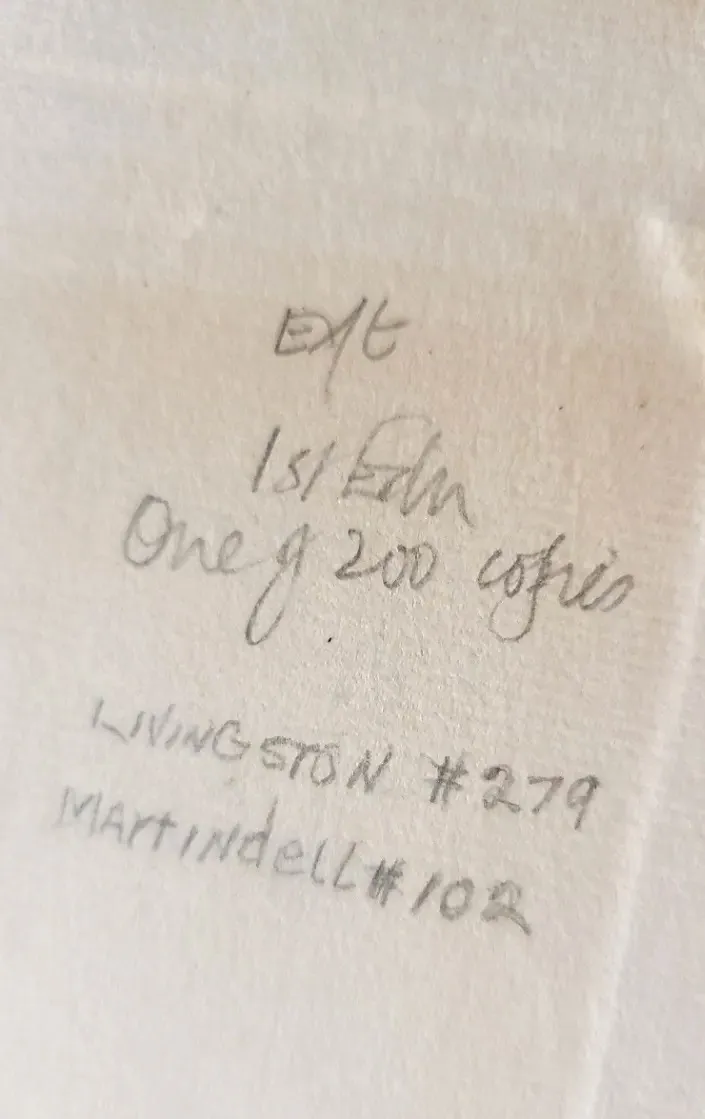 E/t
1st Edn
One of 200 copies
LIVINGSTON #279
MARTINdell #102